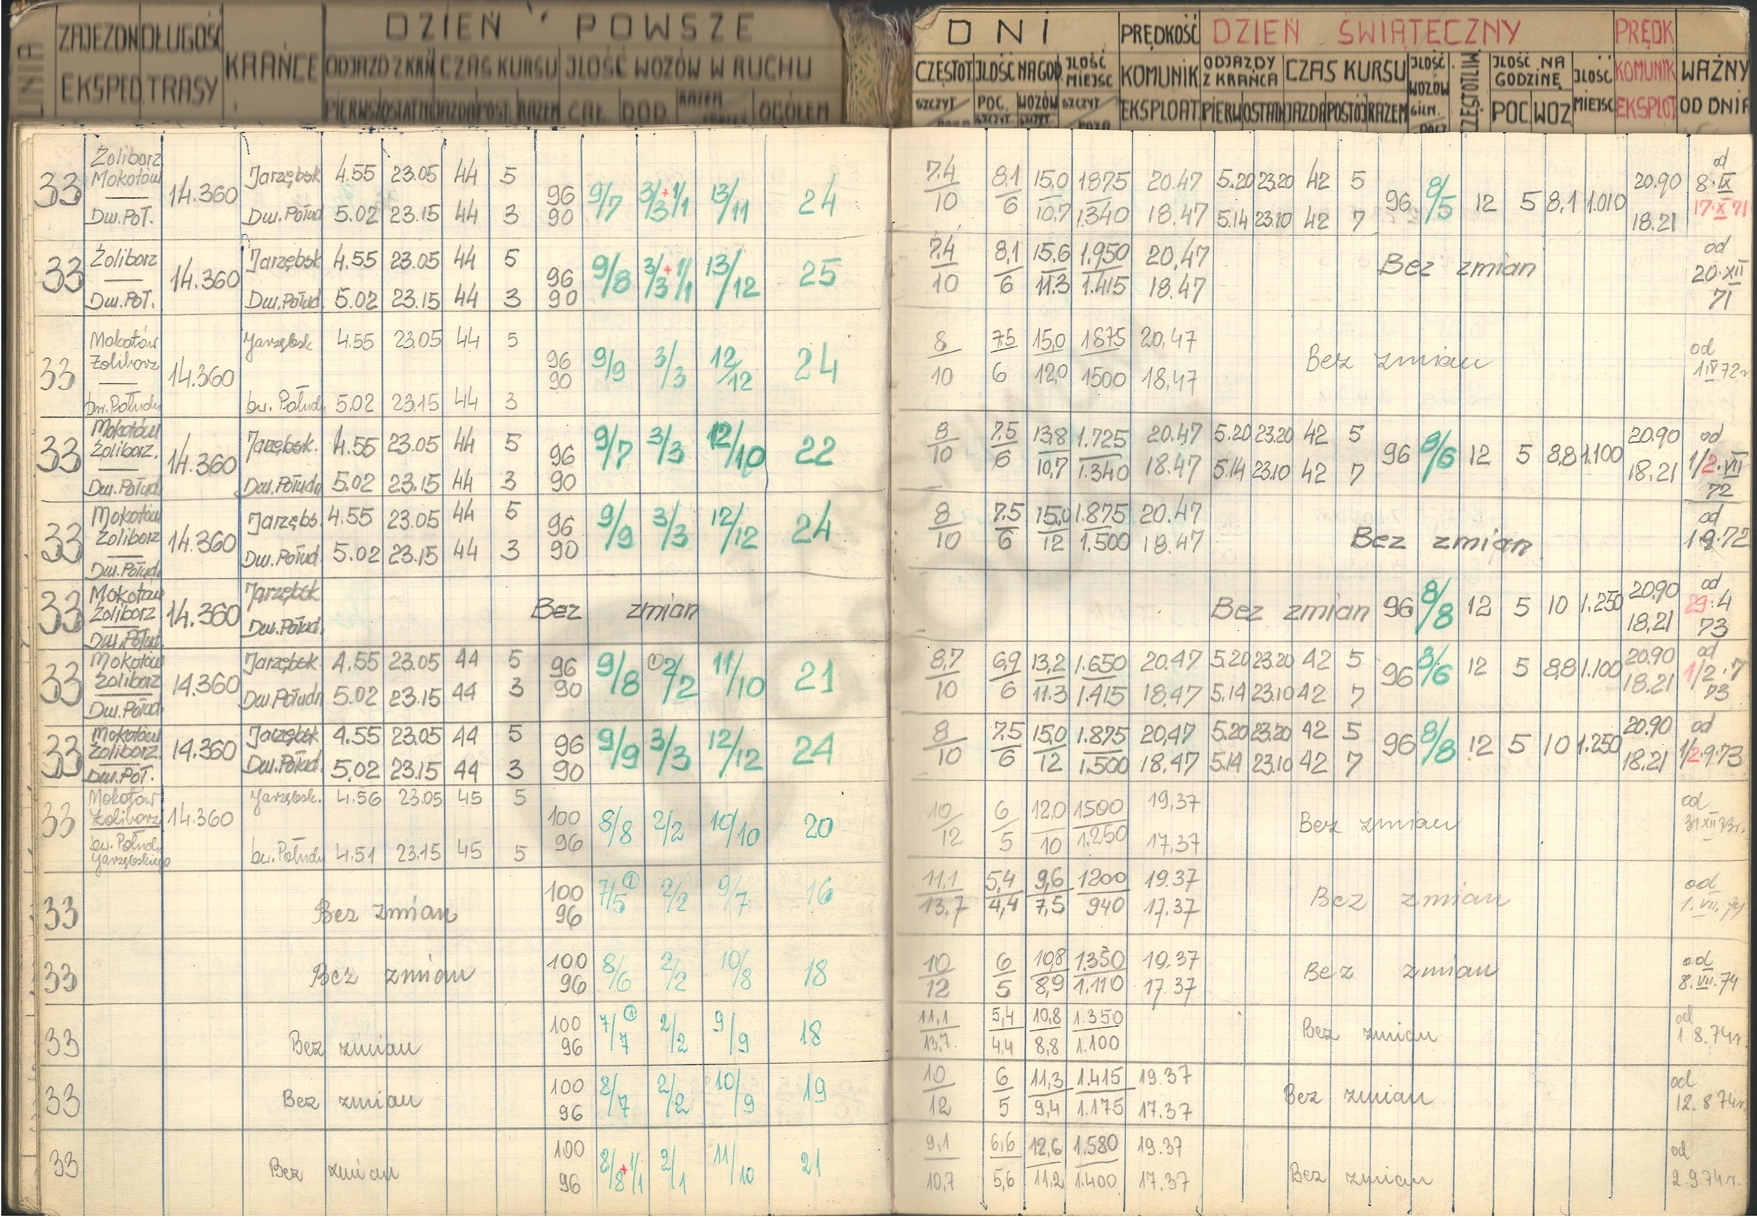 LINIA ZAJEZDN DŁUGOŚĆ KRAŃCE DZIEŃ POWSZE
EKSPED TRASY ODJAZD Z KRAŃ CZAS KURSU ILOŚĆ WOZÓW W RUCHU
PIERWSZ OSTATN JAZDA POST. RAZEM CAŁ. DOD. RAZEM OGÓŁEM
DNI PRĘDKOŚĆ DZIEŃ ŚWIĄTECZNY PRĘDK
CZĘSTOT ILOŚĆ NA GOD. ILOŚĆ MIEJSC KOMUNIK ODJAZDY Z KRAŃCA CZAS KURSU ILOŚĆ WOZÓW CZĘSTOTLIW. ILOŚĆ NA GODZINĘ ILOŚĆ MIEJSC KOMUNIK WAŻNY
SZCZYT POC. SZCZYT WOZÓW SZCZYT SZCZYT EKSPLOAT. PIERW OSTAT JAZDA POSTÓJ RAZEM POC WOZ EKSPLOT OD DNIA
33 Żoliborz Mokotów Dw.Poł. 14.360 Jarzębsk 4.55 23.05 44 5 96 9/7 3/3+1/1 13/11 24 7.4 8,1 15,0 1875 20.47 5.20 23.20 42 5 96 8/5 12 5 8,1 1.010 20.90 od 8.IX
Dw.Połud 5.02 23.15 44 3 90 10 6 10,7 1.340 18.47 5.14 23.10 42 7 18.21 17.X 71
33 Żoliborz Dw.Poł. 14.360 Jarzębsk 4.55 23.05 44 5 96 9/8 3/3+1/1 13/12 25 7.4 8,1 15.6 1.950 20,47 Bez zmian od
Dw.Połud 5.02 23.15 44 3 90 10 6 11.3 1.415 18.47 20.XII 71
33 Mokotów Żoliborz Dw.Połudn 14.360 Jarzębsk 4.55 23.05 44 5 96 9/9 3/3 12/12 24 8 7,5 15,0 1875 20,47 Bez zmian od
Dw. Połudn 5.02 23.15 44 3 90 10 6 12,0 1500 18,47 1 IV 72r
33 Mokotów Żoliborz. Dw.Połud. 14.360 Jarzębsk. 4.55 23.05 44 5 96 9/7 3/3 12/10 22 8 7.5 13,8 1.725 20.47 5.20 23.20 42 5 96 8/6 12 5 8,8 1.100 20.90 od
Dw.Połudn 5.02 23.15 44 3 90 10 6 10,7 1.340 18.47 5.14 23.10 42 7 18.21 1/2.VII 72
33 Mokotów Żoliborz Dw.Połud. 14.360 Jarzębs. 4.55 23.05 44 5 96 9/9 3/3 12/12 24 8 7.5 15,0 1.875 20.47 Bez zmian od
Dw.Połud. 5.02 23.15 44 3 90 10 6 12 1.500 18.47 1.9.72
33 Mokotów Żoliborz Dw.Połud. 14.360 Jarzębsk Dw.Połud. Bez zmian Bez zmian 96 8/8 12 5 10 1.250 20.90 18.21 od 29.4 73
33 Mokotów Żoliborz Dw.Połud 14.360 Jarzębsk. 4.55 23.05 44 5 96 9/8 ①2/2 11/10 21 8,7 6,9 13,2 1.650 20.47 5.20 23.20 42 5 96 8/6 12 5 8,8 1.100 20.90 od
Dw.Połudn 5.02 23.15 44 3 90 10 6 11.3 1.415 18,47 5.14 23.10 42 7 18.21 1/2.7 73
33 Mokotów Żoliborz. Dw.Poł. 14.360 Jarzębsk 4.55 23.05 44 5 96 9/9 3/3 12/12 24 8 7.5 15,0 1.875 20,47 5.20 23.20 42 5 96 8/8 12 5 10 1.250 20.90 od
Dw.Połud. 5.02 23.15 44 3 90 10 6 12 1.500 18,47 5.14 23.10 42 7 18.21 1/2.9.73
33 Mokotów Żoliborz Dw. Połudn Jarzębskiego 14.360 Jarzębsk. 4.56 23.05 45 5 100 8/8 2/2 10/10 20 10 6 12,0 1500 19,37 Bez zmian od
Dw. Połudn 4.51 23.15 45 5 96 12 5 10 1.250 17,37 31 XII 73r.
33 Bez zmian 100 7/5① 2/2 9/7 16 11,1 5,4 9,6 1200 19.37 Bez zmian od
96 13,7 4,4 7,5 940 17.37 1.VII.74
33 Bez zmian 100 8/6 2/2 10/8 18 10 6 10,8 1.350 19.37 Bez zmian od
96 12 5 8,9 1.110 17.37 8.VII.74
33 Bez zmian 100 7/7① 2/2 9/9 18 11,1 5,4 10,8 1.350 Bez zmian od
96 13,7. 4,4 8,8 1.100 1 8.74r.
33 Bez zmian 100 8/7 2/2 10/9 19 10 6 11,3 1.415 19.37 Bez zmian od
96 12 5 9,4 1.175 17.37 12.8 74r.
33 Bez zmian 100 8/8+1/1 2/1 11/10 21 9,1 6,6 12,6 1.580 19.37 Bez zmian od
96 10,7 5,6 11,2 1.400 17.37 2.9.74r.